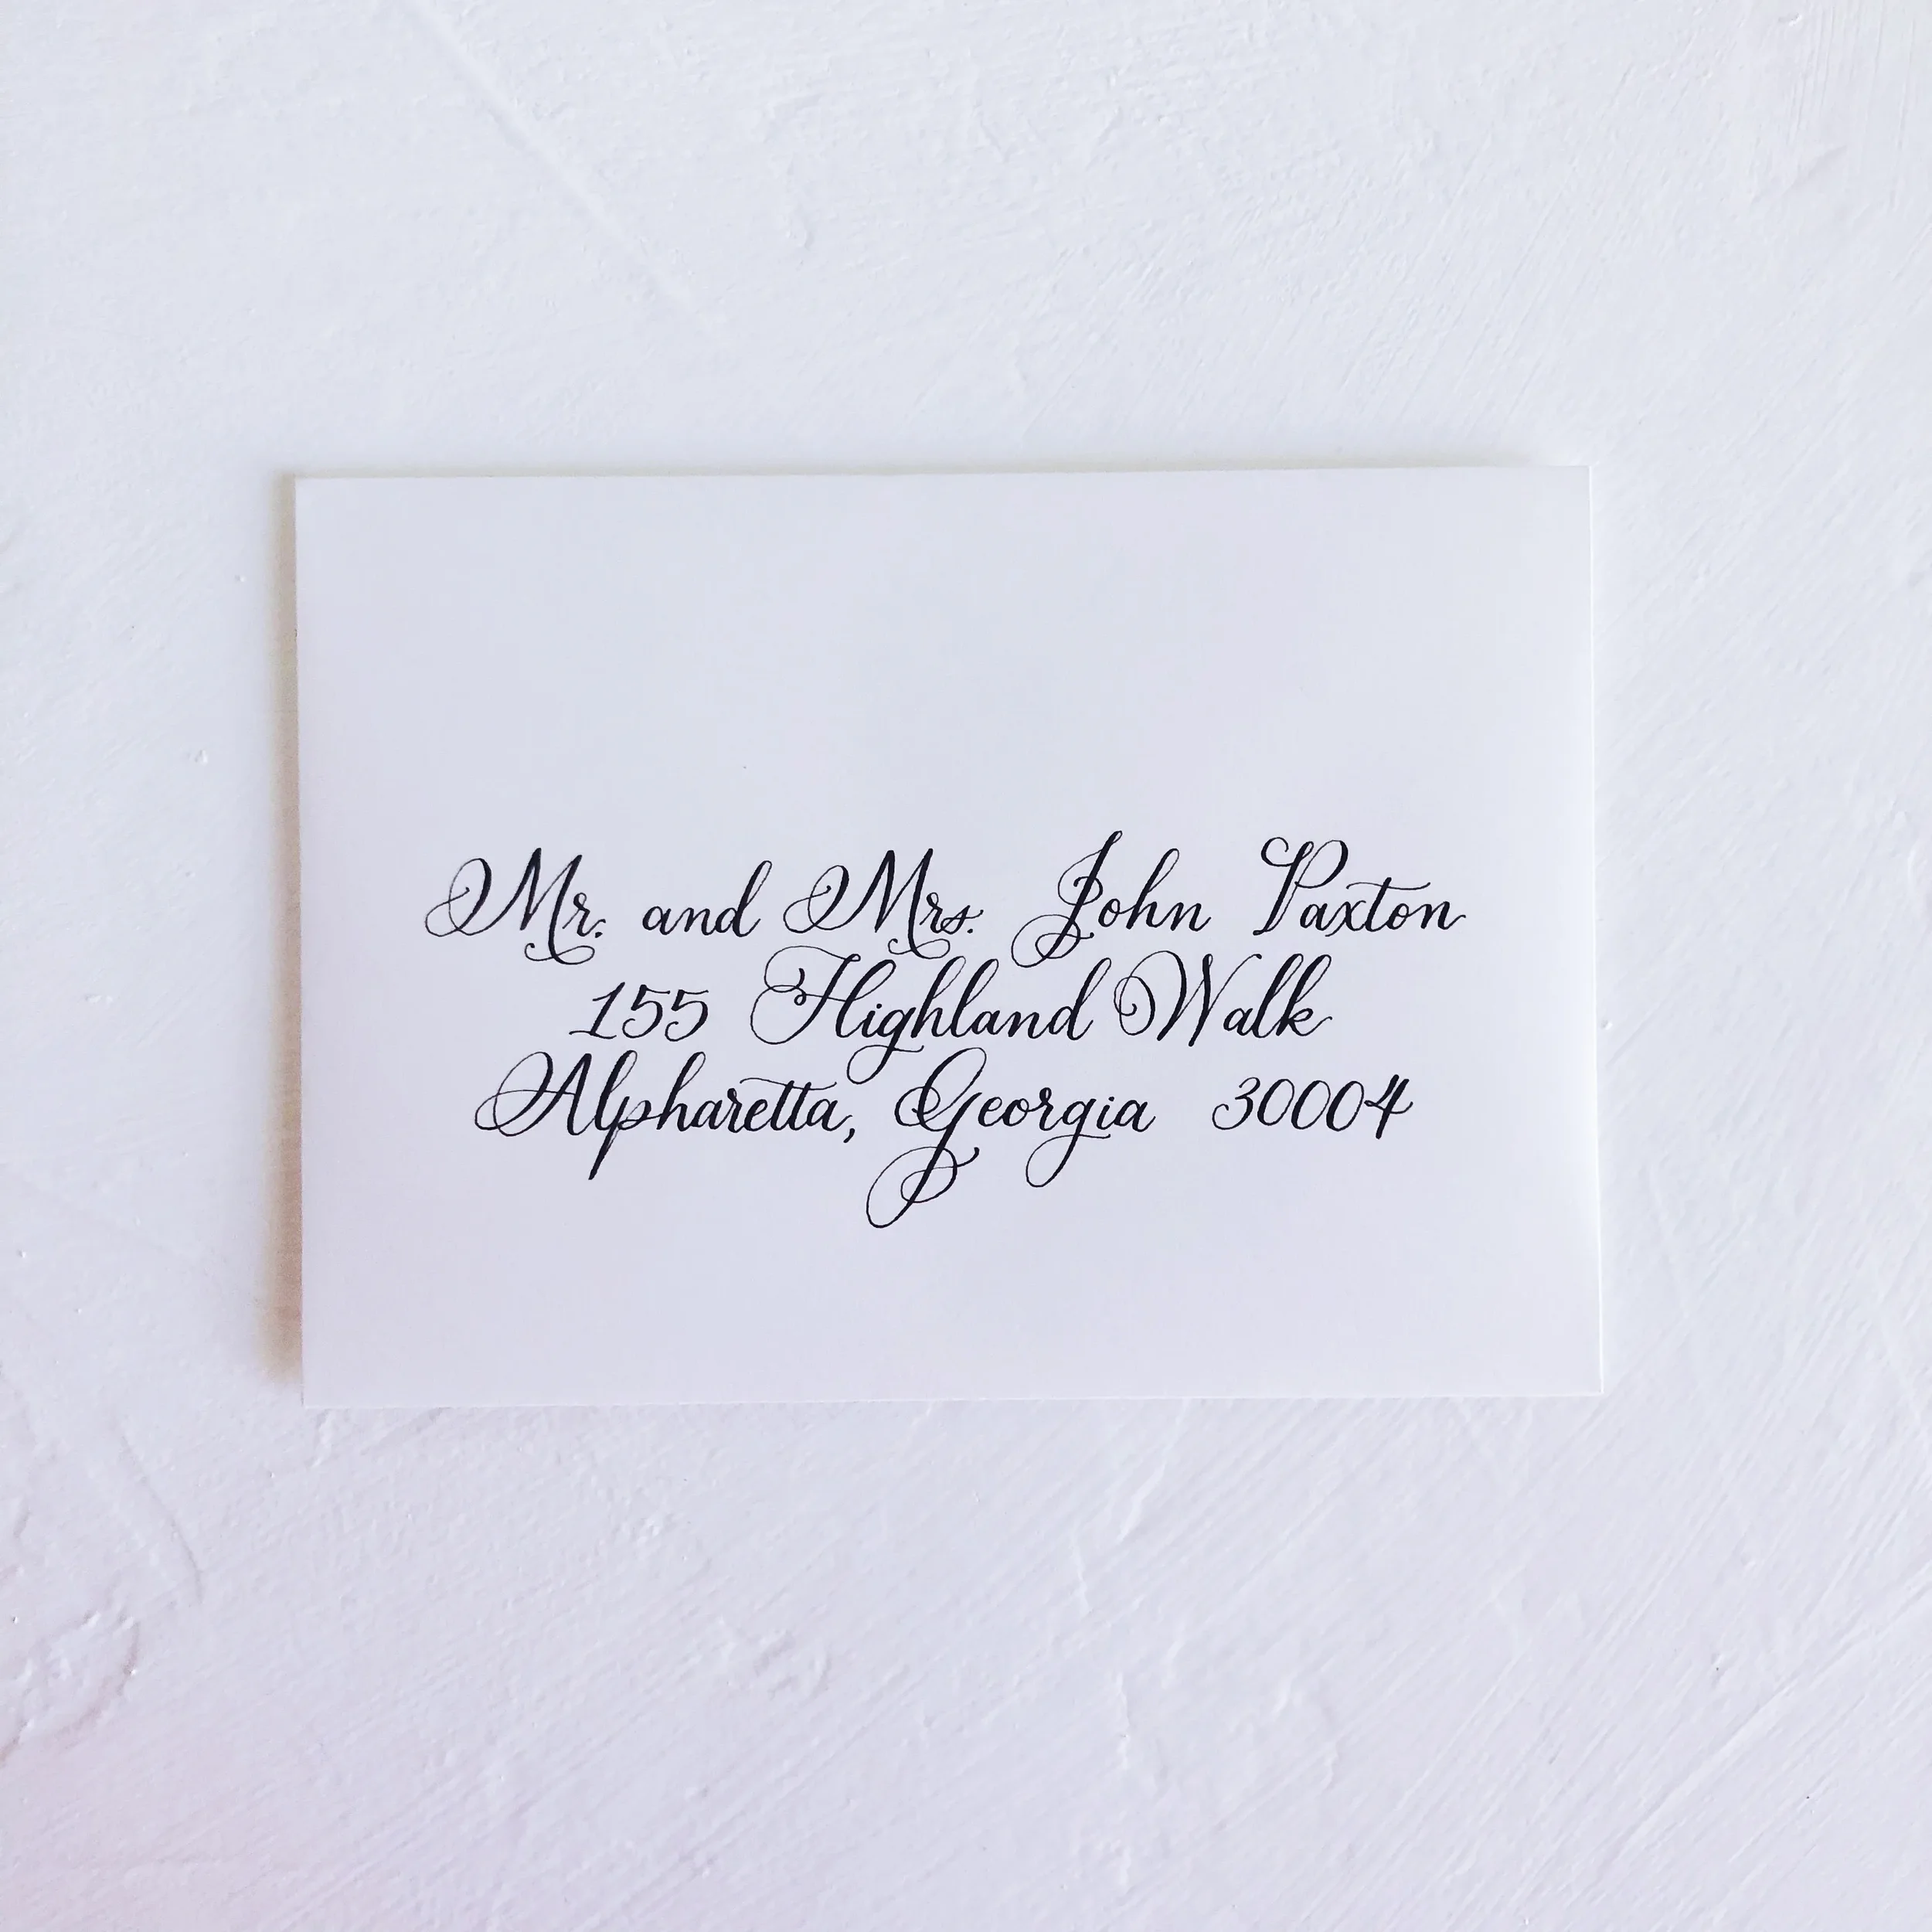 Mr. and Mrs. John Paxton
155 Highland Walk
Alpharetta, Georgia 30004